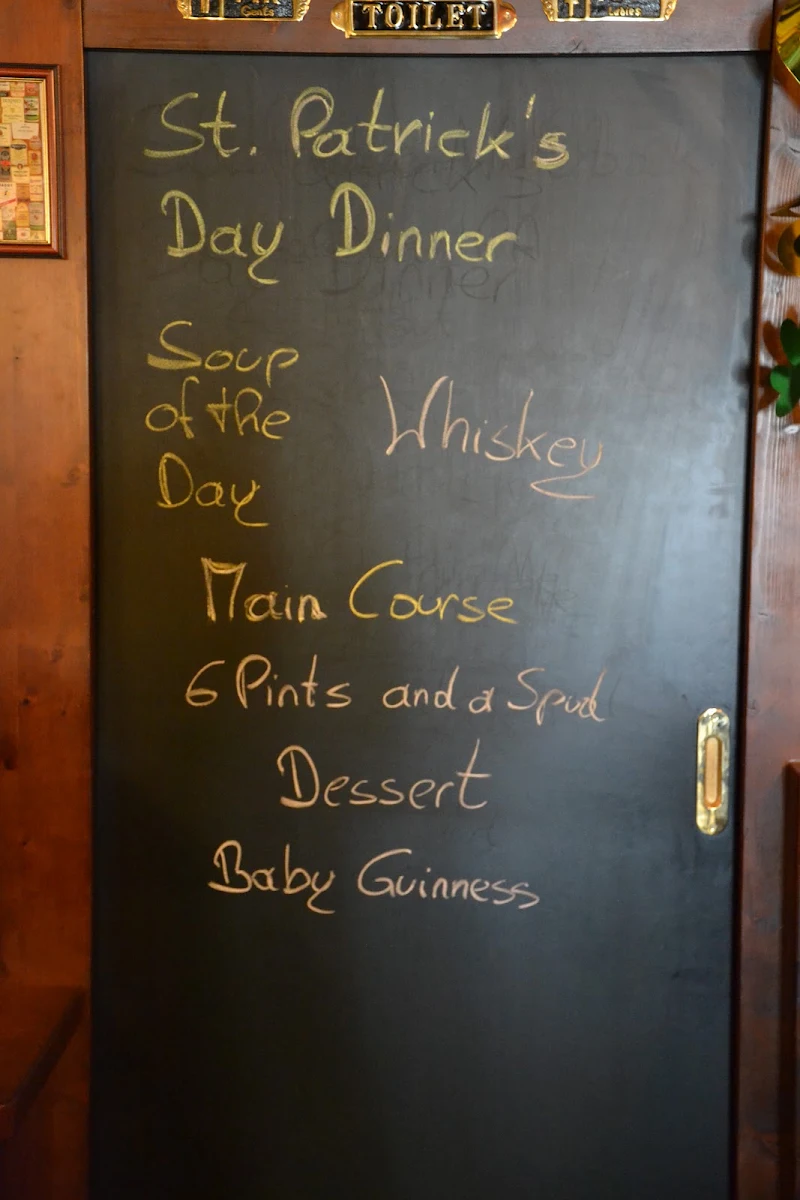 Gents
TOILET
Ladies
St. Patrick's
Day Dinner
Soup
of the
Day
Whiskey
Main Course
6 Pints and a Spud
Dessert
Baby Guinness